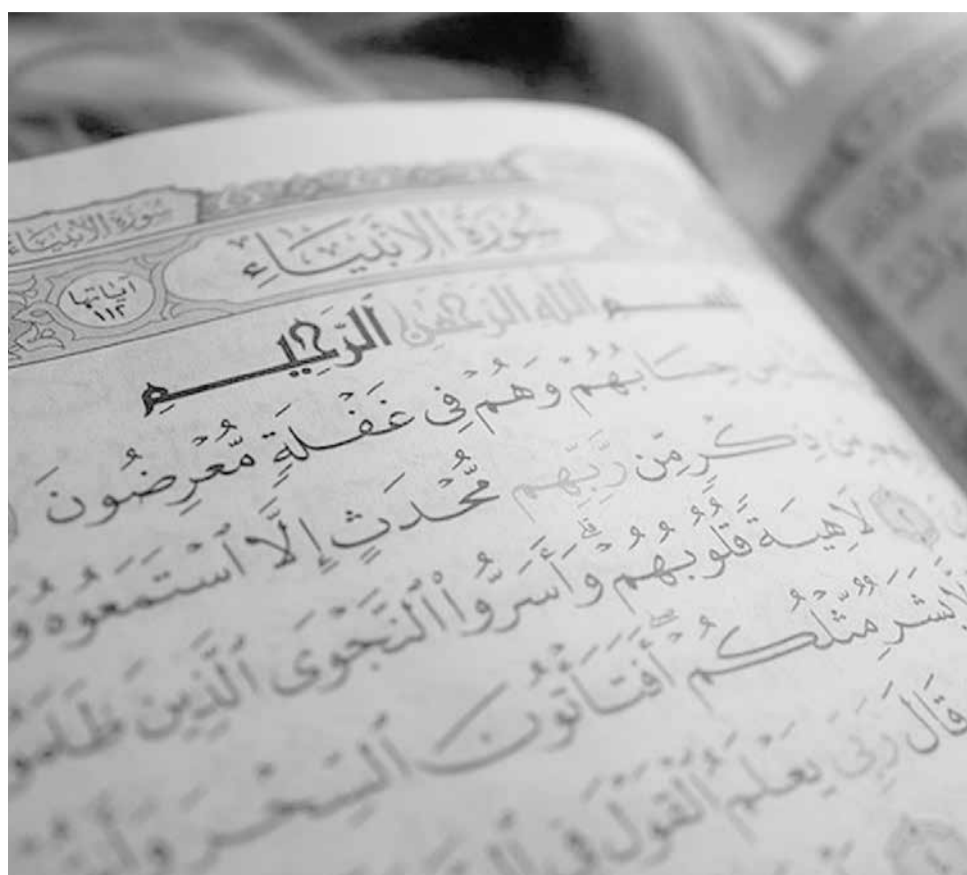 سُورَةُ الْأَنْبِيَاءِ
سُورَةُ الْأَنْبِيَاءِ
آيَاتُهَا
١١٢
بِسْمِ ٱللَّهِ ٱلرَّحْمَٰنِ ٱلرَّحِيمِ
حِسَابُهُمْ وَهُمْ فِى غَفْلَةٍ مُّعْرِضُونَ
مِّن ذِكْرٍ مِّن رَّبِّهِم مُّحْدَثٍ إِلَّا ٱسْتَمَعُوهُ
لَاهِيَةً قُلُوبُهُمْ وَأَسَرُّوا۟ ٱلنَّجْوَى ٱلَّذِينَ
بَشَرٌ مِّثْلُكُمْ أَفَتَأْتُونَ ٱلسِّحْرَ
قَالَ رَبِّى يَعْلَمُ ٱلْقَوْلَ فِى